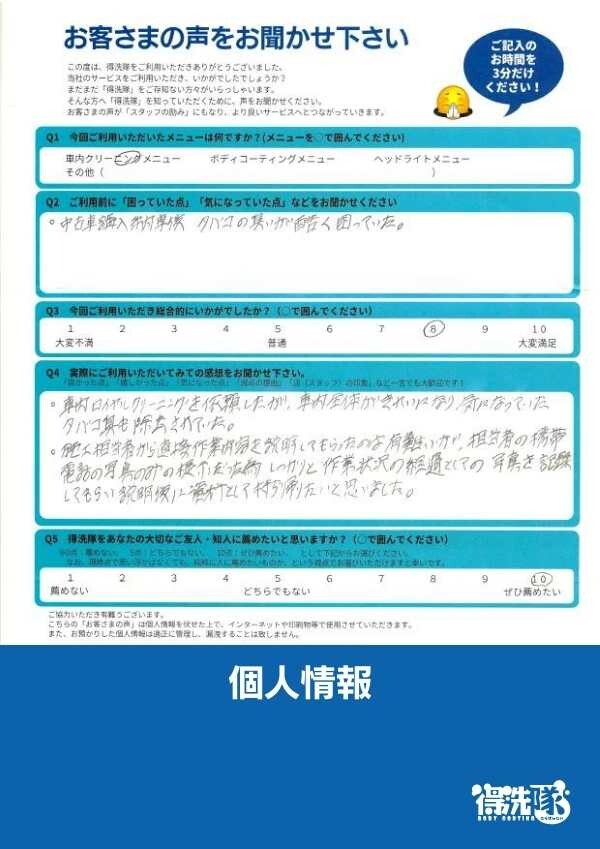 お客さまの声をお聞かせ下さい
ご記入の
お時間を
3分だけ
ください!
この度は、得洗隊をご利用いただきありがとうございました。
当社のサービスをご利用いただき、いかがでしたでしょうか?
まだまだ「得洗隊」をご存知ない方々がいらっしゃいます。
そんな方へ「得洗隊」を知っていただくために、声をお聞かせください。
お客さまの声が「スタッフの励み」にもなり、より良いサービスへとつながっていきます。
Q1 今回ご利用いただいたメニューは何ですか?(メニューを〇で囲んでください)
車内クリーニングメニュー ボディコーティングメニュー ヘッドライトメニュー
その他( )
Q2 ご利用前に「困っていた点」「気になっていた点」などをお聞かせください
。中古車購入 タバコの臭いが酷く困っていた。
Q3 今回ご利用いただき総合的にいかがでしたか?(〇で囲んでください)
1 2 3 4 5 6 7 8 9 10
大変不満 普通 大変満足
Q4 実際にご利用いただいてみての感想をお聞かせ下さい。
「良かった点」「嬉しかった点」「気になった点」「満点の理由」「店(スタッフ)の印象」など一言でも大歓迎です!
。車内ロイヤルクリーニングを依頼したが、車内全体がきれいになり、気になっていた
タバコ臭も除去されていた。
。施工担当者から直接作業内容を説明してもらったのは有難いが、担当者の携帯
電話の写真のみの しっかりと作業状況の経過としての写真を記録
してもらい説明後に資料として持ち帰りたいと思いました。
Q5 得洗隊をあなたの大切なご友人・知人に薦めたいと思いますか?(〇で囲んでください)
※0点:薦めない、 5点:どちらでもない、 10点:ぜひ薦めたい、 として下記からお選びください。
なお、現時点で思い浮かばなくても、純粋に人に薦めたいものか、という視点でお選びいただけますと幸いです。
1 2 3 4 5 6 7 8 9 10
薦めない どちらでもない ぜひ薦めたい
ご協力いただき有難うございます。
こちらの「お客さまの声」は個人情報を伏せた上で、インターネットや印刷物等で使用させていただきます。
また、お預かりした個人情報は適正に管理し、漏洩することは致しません。
個人情報
得洗隊